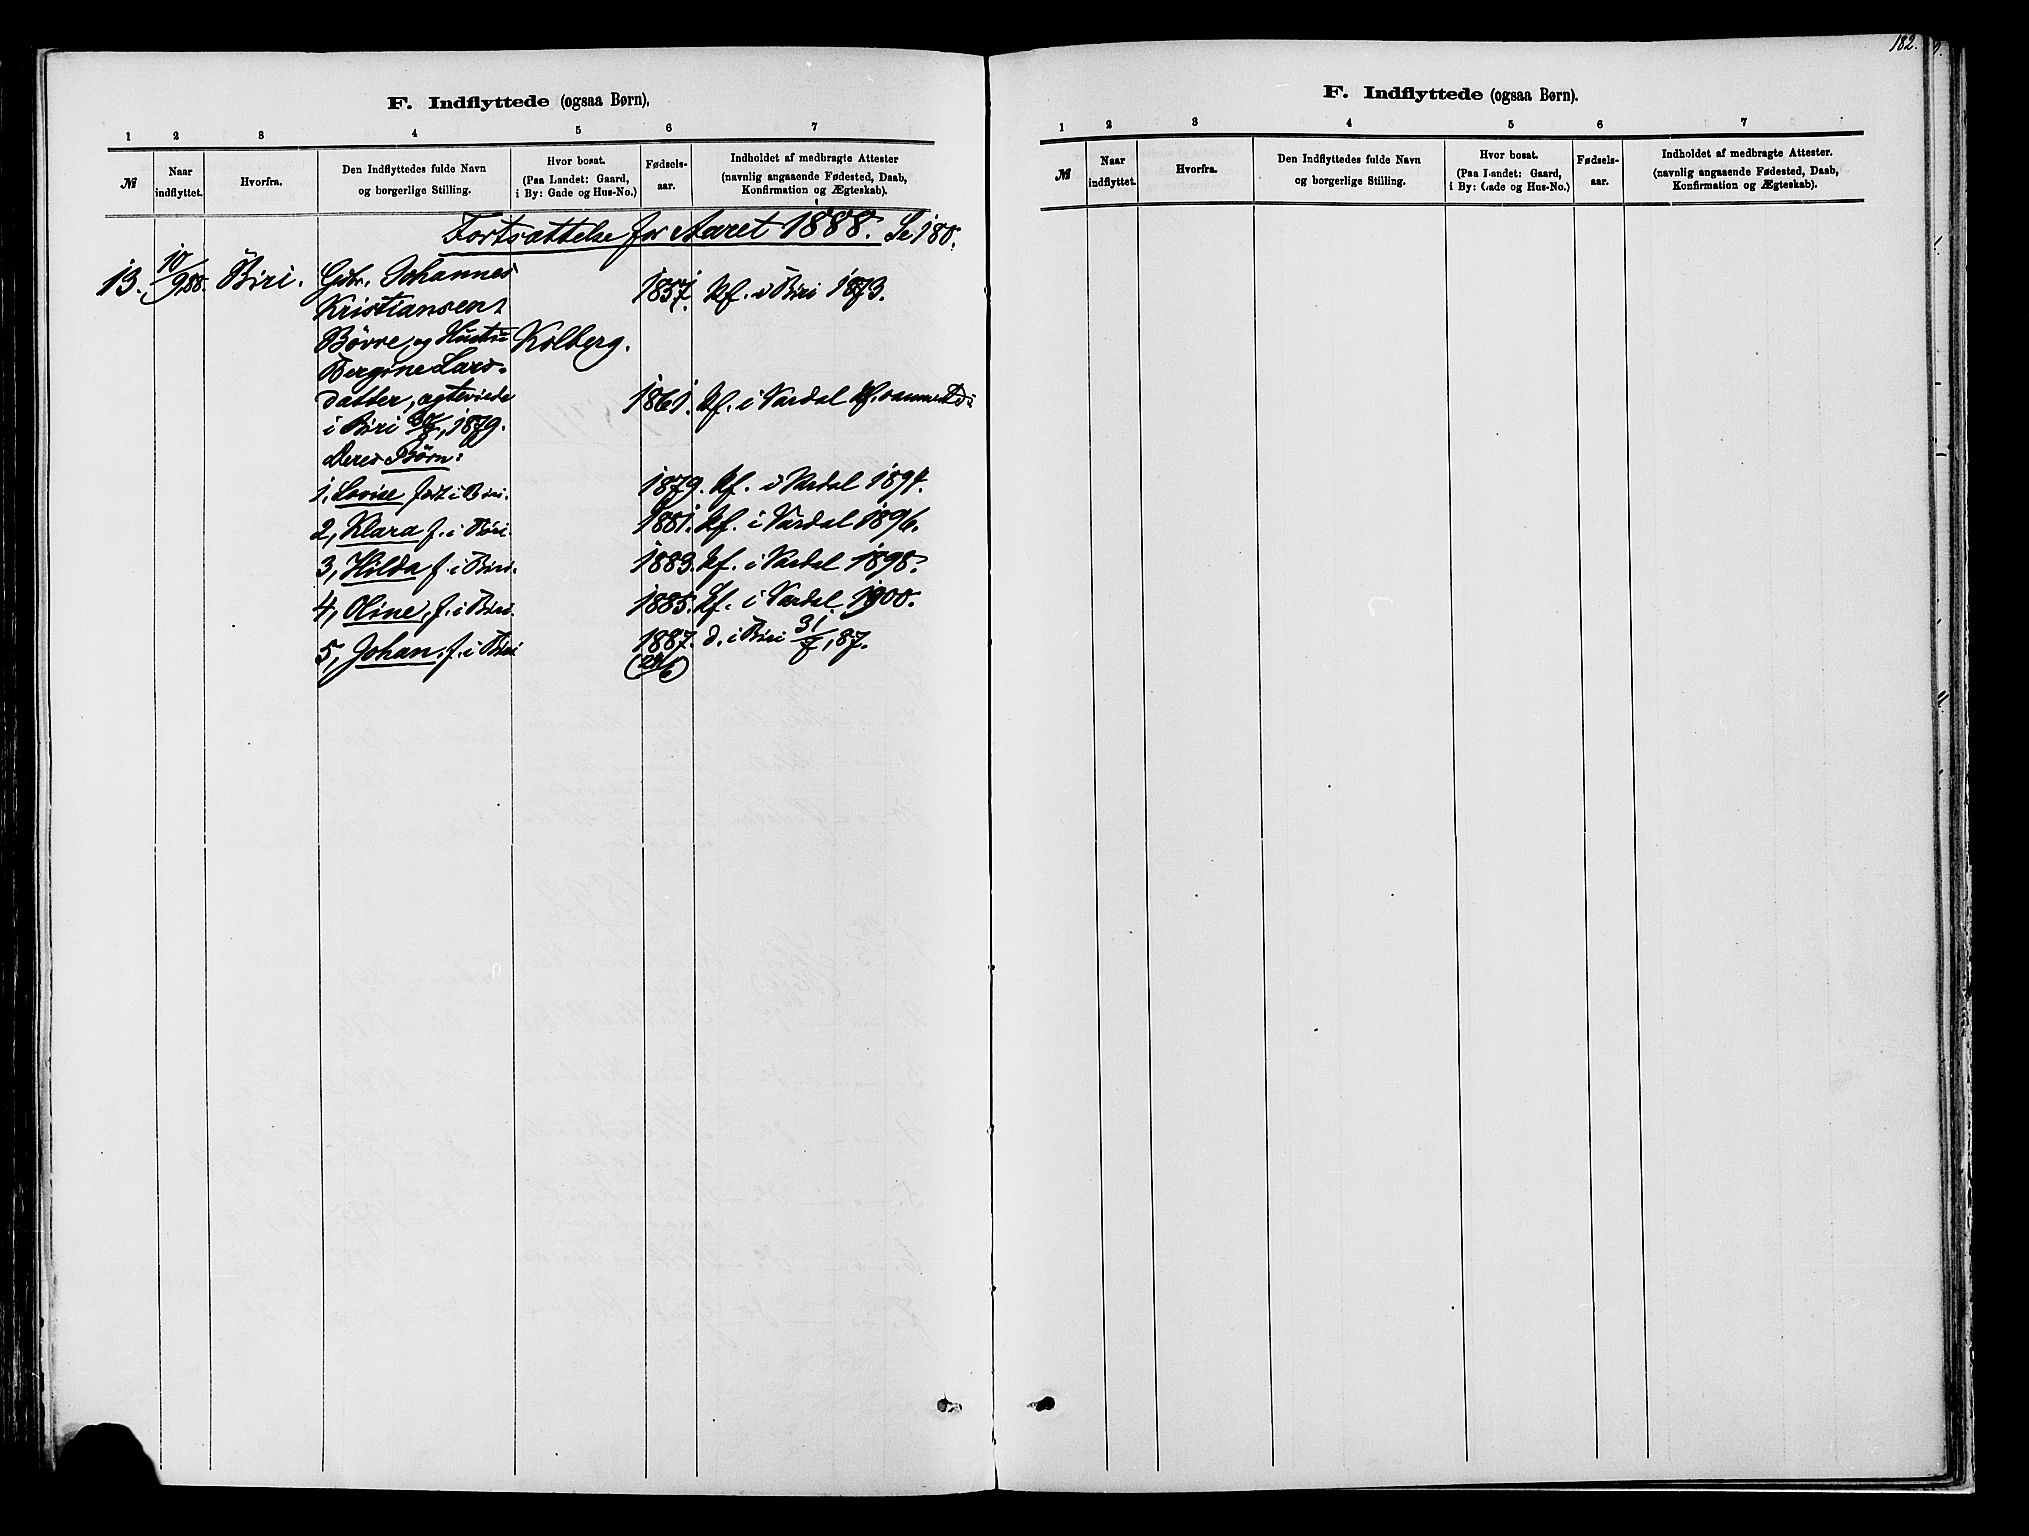 182.
F. Indflyttede (ogsaa Børn).
1 2 3 4 5 6 7
№ Naar indflyttet. Hvorfra. Den Indflyttedes fulde Navn og borgerlige Stilling. Hvor bosat. (Paa Landet: Gaard, i By: Gade og Hus-No.) Fødsels-aar. Indholdet af medbragte Attester (navnlig angaaende Fødested, Daab, Konfirmation og Ægteskab).
Fortsættelse for Aaret 1888. Se 180.
13. 10/9 88. Biri. Gbr. Johannes 1857. Kf. i Biri 1873.
Kristiansen
Børre, og Hustru Kolberg.
Bergine Lars-
datter, ægteviede 1861. Kf. i Vardal
i Biri 1879.
Deres Børn:
1, Lovise født i Biri. 1879. Kf. i Vardal 1894.
2, Klara f. i Biri. 1881. Kf. i Vardal 1896.
3, Hilda f. i Biri. 1883. Kf. i Vardal 1898.
4, Oline, f. i Biri. 1885. Kf. i Vardal 1900.
5, Johan, f. i Biri 1887. d. i Biri 31/7, 87.
F. Indflyttede (ogsaa Børn).
1 2 3 4 5 6 7
№ Naar indflyttet. Hvorfra. Den Indflyttedes fulde Navn og borgerlige Stilling. Hvor bosat. (Paa Landet: Gaard, i By: Gade og Hus-No.) Fødsels-aar. Indholdet af medbragte Attester. (navnlig angaaende Fødested, Daab, Konfirmation og Ægteskab).